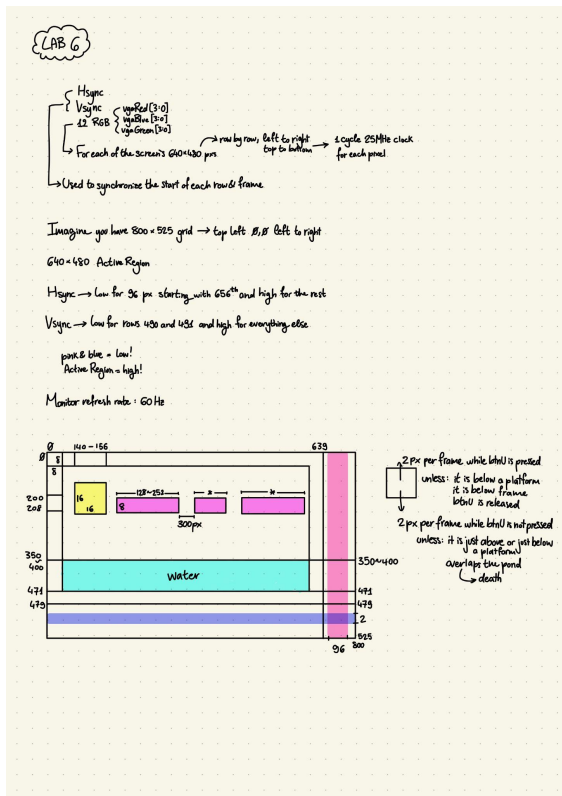 LAB 6
Hsync
Vsync
12 RGB
vgaRed[3:0]
vgaBlue[3:0]
vgaGreen[3:0]
For each of the screen's 640×480 pxs
row by row, left to right
top to bottom
1 cycle 25MHz clock
for each pixel
Used to synchronize the start of each row & frame
Imagine you have 800×525 grid → top left 0,0 left to right
640×480 Active Region
Hsync → low for 96 px starting with 656th and high for the rest
Vsync → low for rows 490 and 491 and high for everything else
pink & blue = low!
Active Region = high!
Monitor refresh rate : 60 Hz
0 140-156 639
0 8
8
16
16
128~252
8
*
*
300px
200
208
350
400
350~400
water
471 471
479 479
2
525
96 800
2 px per frame while btnU is pressed
unless: it is below a platform
it is below frame
btnU is released
2 px per frame while btnU is not pressed
unless: it is just above or just below
a platform
overlaps the pond
death